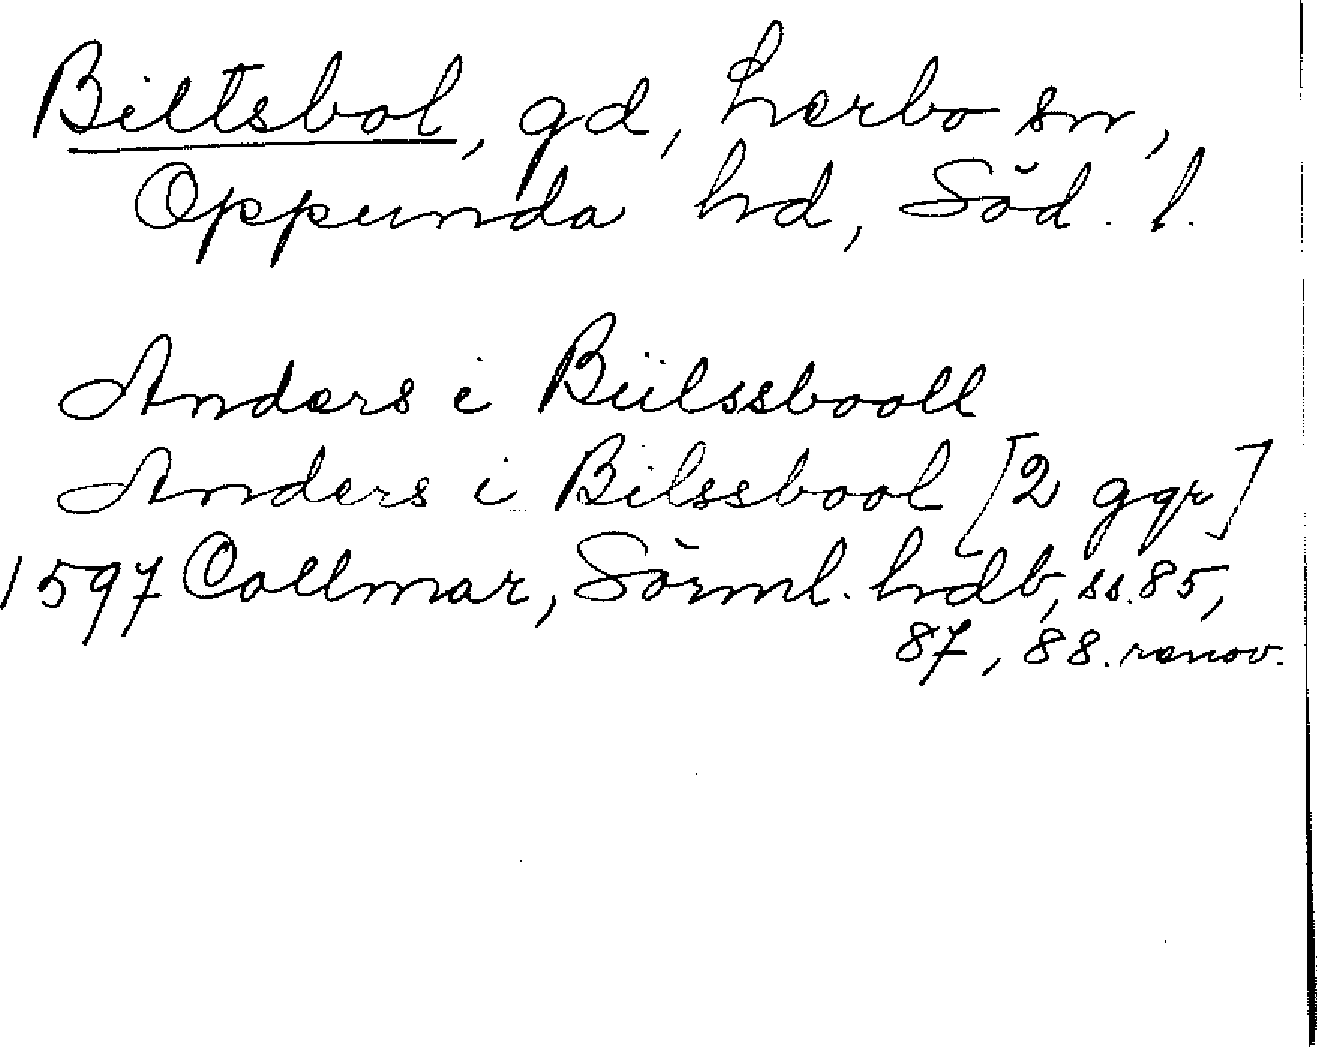 Biltsbol, gd, Lerbo sn,
Oppunda hd, Söd. l.
Anders i Biilssbooll
Anders i Bilssbool [2 ggr]
1597 Collmar, Sörml. hdb, ss. 85,
87, 88. renov.